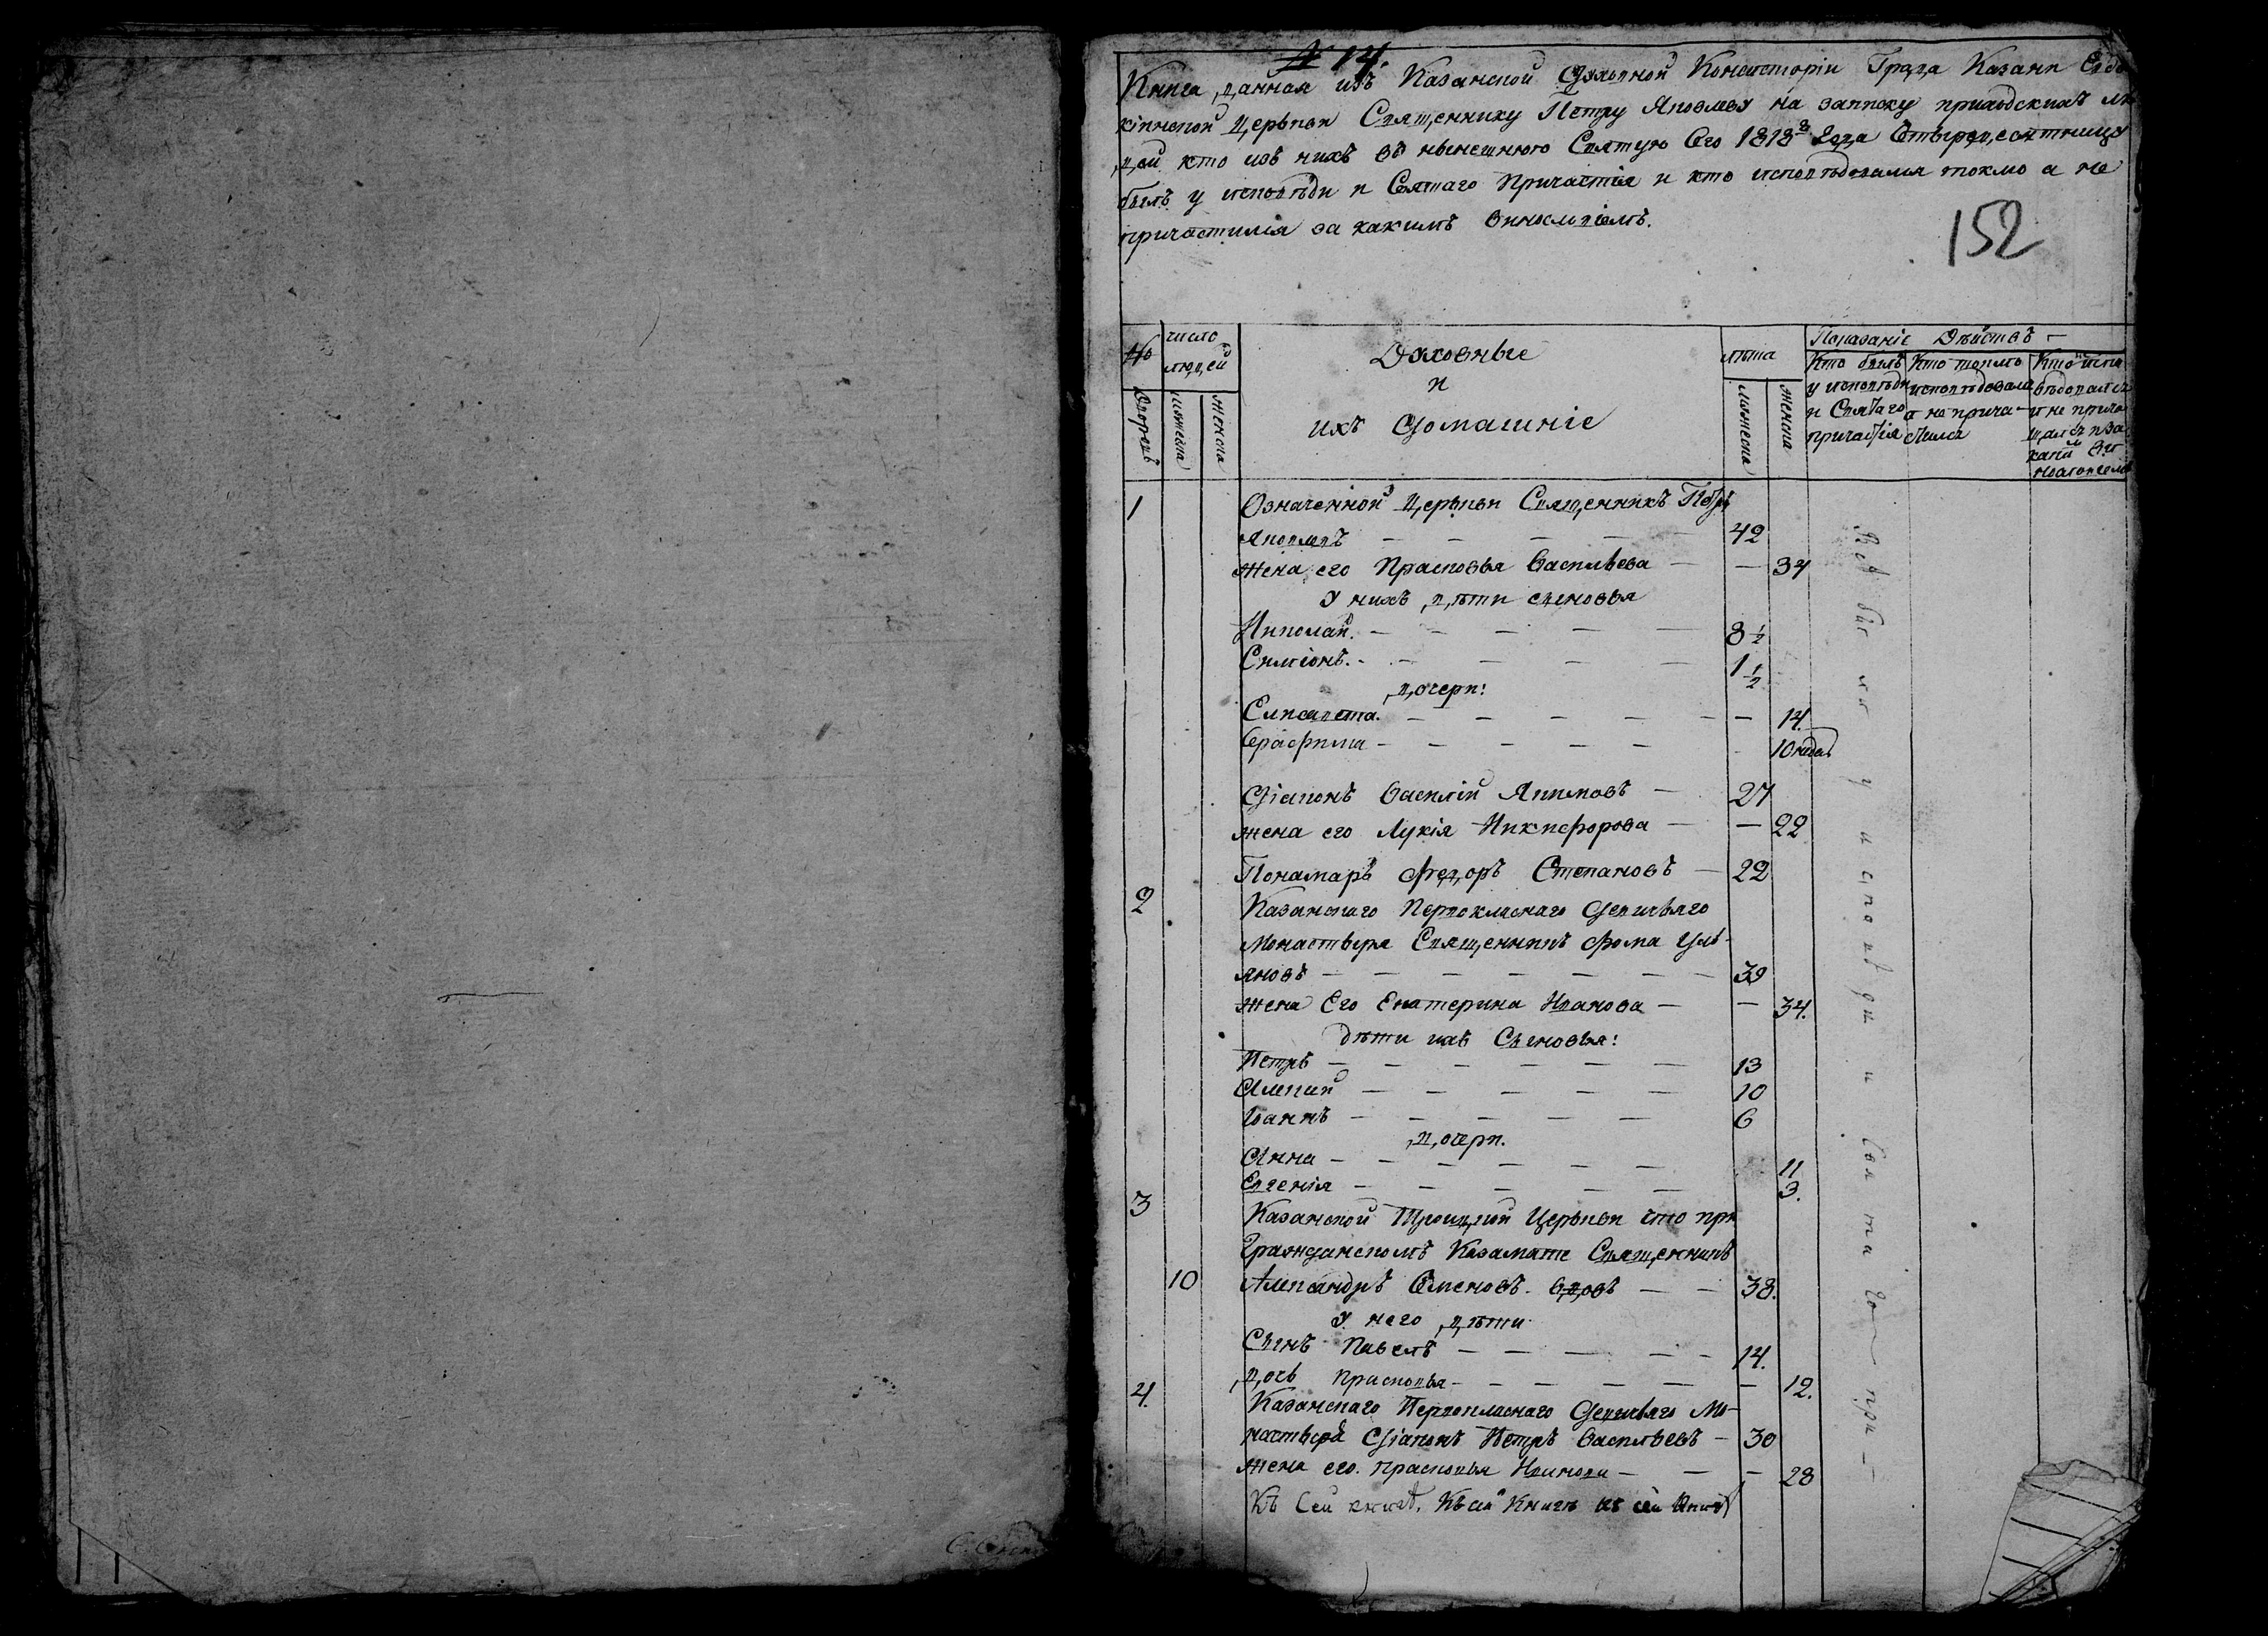 № 14.
Книга данная изъ Казанской Духовной Консисторіи Града Казани Евдо
кіинской Церькви Священнику Петру Яковлеву на записку приходскихъ лю
дей кто изъ нихъ въ нынешнюю Святую Сего 1818го Года Четыредесятницу
былъ у исповѣди и Святаго Причастія и кто исповѣдовался токмо а не
причастился за какимъ винословіемъ.
152
№ число людей
Духовные
и
ихъ Домашніе
лѣта
Показаніе Действъ
Кто былъ у исповѣди и Святаго причастія
Кто токмо исповѣдовался а не причастился
Дворовъ мужеска женска
мужеска женска
1 Означенной Церькви Священникъ Петръ
Яковлевъ — 42
Жена его Прасковья Васильева — 34
У нихъ дѣти сыновья
Николай. — 8 ½
Симіонъ. — 1 ½
дочери:
Елисавета. — 14.
Серафима — 10 недѣл
Діаконъ Василій Якимовъ — 27
жена его Лукія Никифорова — 22
Пономарь Федоръ Степановъ — 22
2 Казанскаго Первокласнаго Девичьяго
Монастыря Священникъ Фома Уль-
яновъ — 39
жена Его Екатерина Иванова — 34.
дѣти ихъ Сыновья:
Петръ — 13
Алексій — 10
Іоаннъ — 6
дочери.
Анна — 11
Евгенія — 3.
3 Казанской Троицкой Церькви что при
Гражданскомъ Казамате Священникъ
10 Александръ Семеновъ. вдовъ — 38.
У него дѣти
Сынъ Павелъ — 14.
дочь Прасковья — 12.
4. Казанскаго Первокласнаго Девичьяго Мо-
настыря Діаконъ Петръ Васильевъ — 30
жена его. Прасковья Иванова — 28
Къ Сей книгѣ. Къ сей Книгѣ къ сей Книгѣ
Всѣ были у исповѣди и Святаго при—